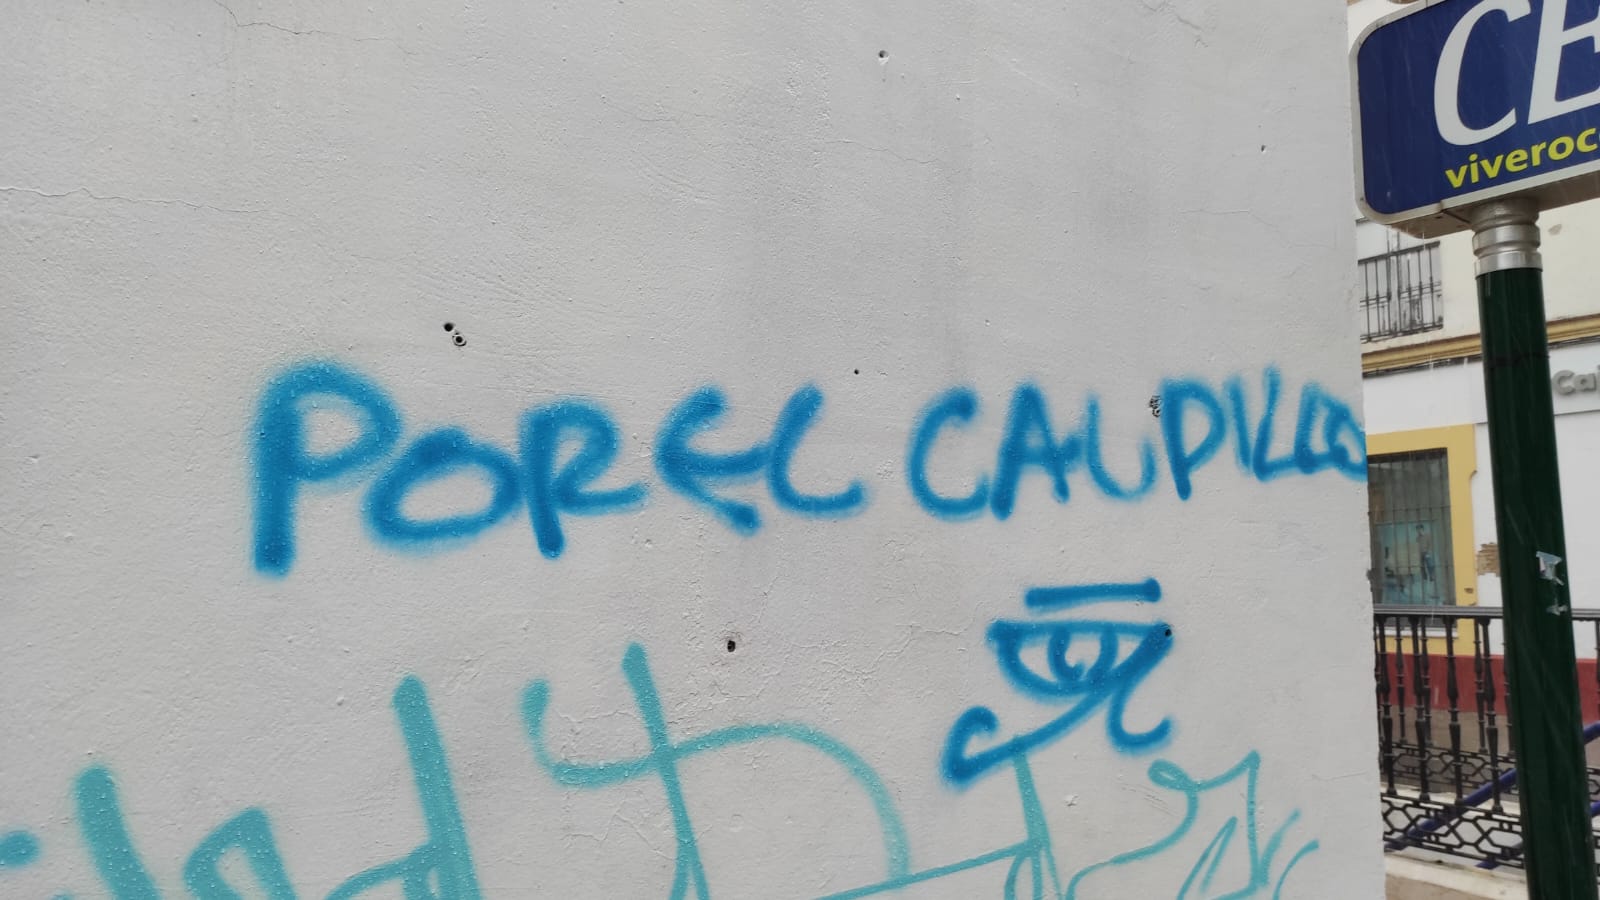 POR EL CAUDILLO
CE
viveroc
Ca